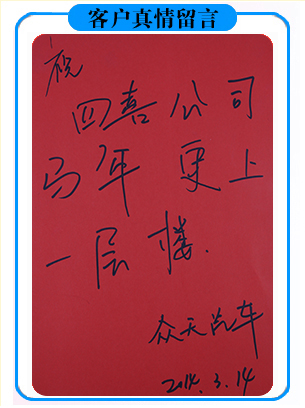 客户真情留言
祝
四喜公司
马年 更上
一层楼.
众天汽车
2014.3.14